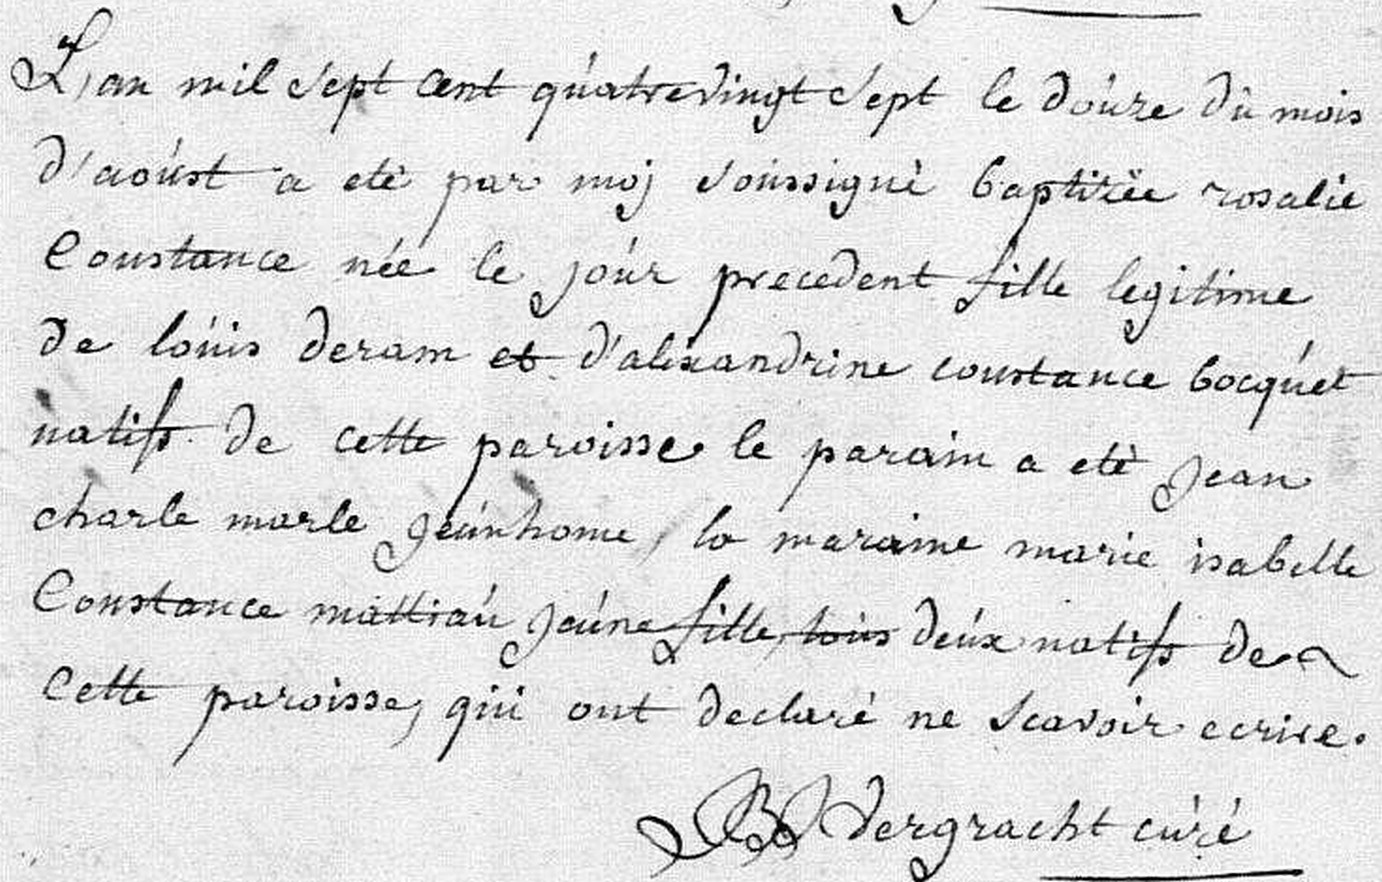 L'an mil sept cent quatrevingt sept le douze du mois
d'aoust a eté par moj soussigné baptisée rosalie
Constance née le jour precedent fille legitime
de louis deram et d'alixandrine constance bocquet
natifs de cette paroisse le parain a eté jean
charle marle jeunhome, la maraine marie isabelle
Constance mattiau jeune fille, tous deux natifs de
cette paroisse, qui ont declaré ne scavoir ecrire.
dergracht curé